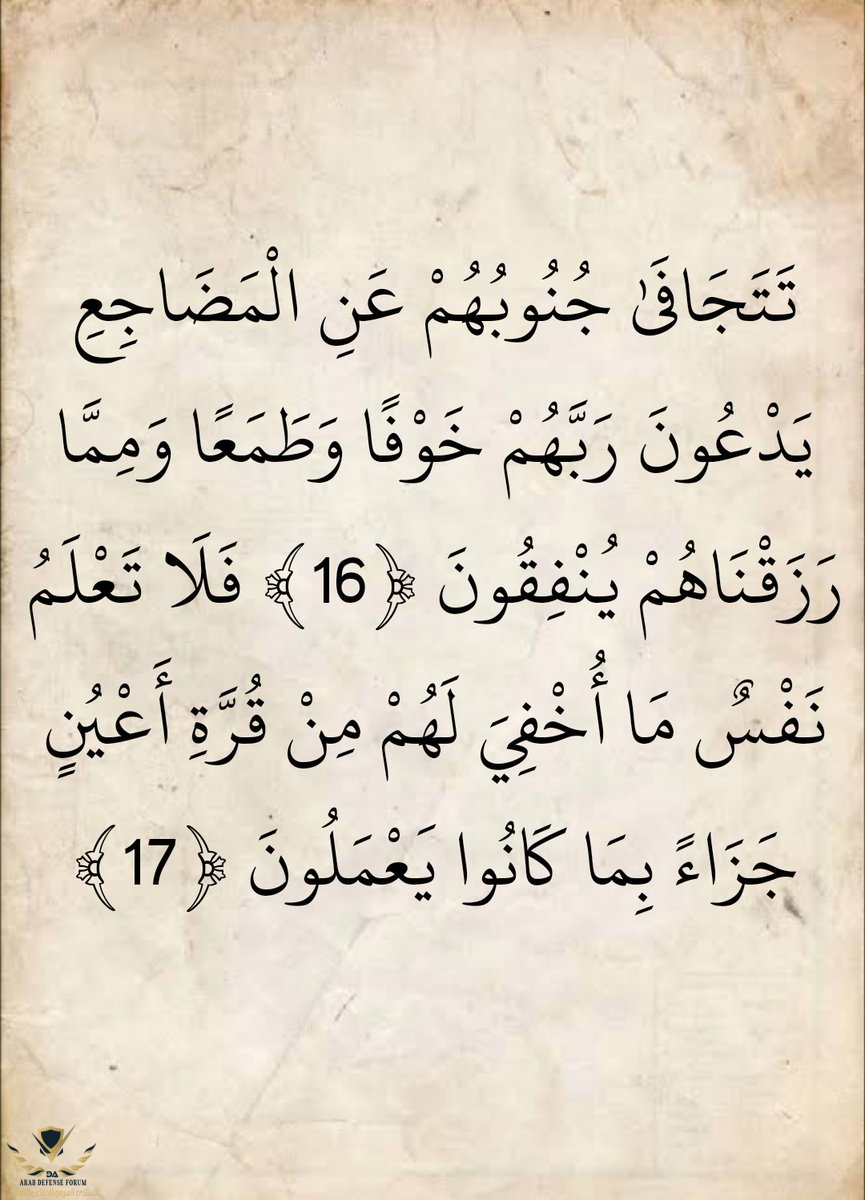 تَتَجَافَىٰ جُنُوبُهُمْ عَنِ الْمَضَاجِعِ
يَدْعُونَ رَبَّهُمْ خَوْفًا وَطَمَعًا وَمِمَّا
رَزَقْنَاهُمْ يُنْفِقُونَ ﴿16﴾ فَلَا تَعْلَمُ
نَفْسٌ مَا أُخْفِيَ لَهُمْ مِنْ قُرَّةِ أَعْيُنٍ
جَزَاءً بِمَا كَانُوا يَعْمَلُونَ ﴿17﴾
DA
ARAB DEFENSE FORUM